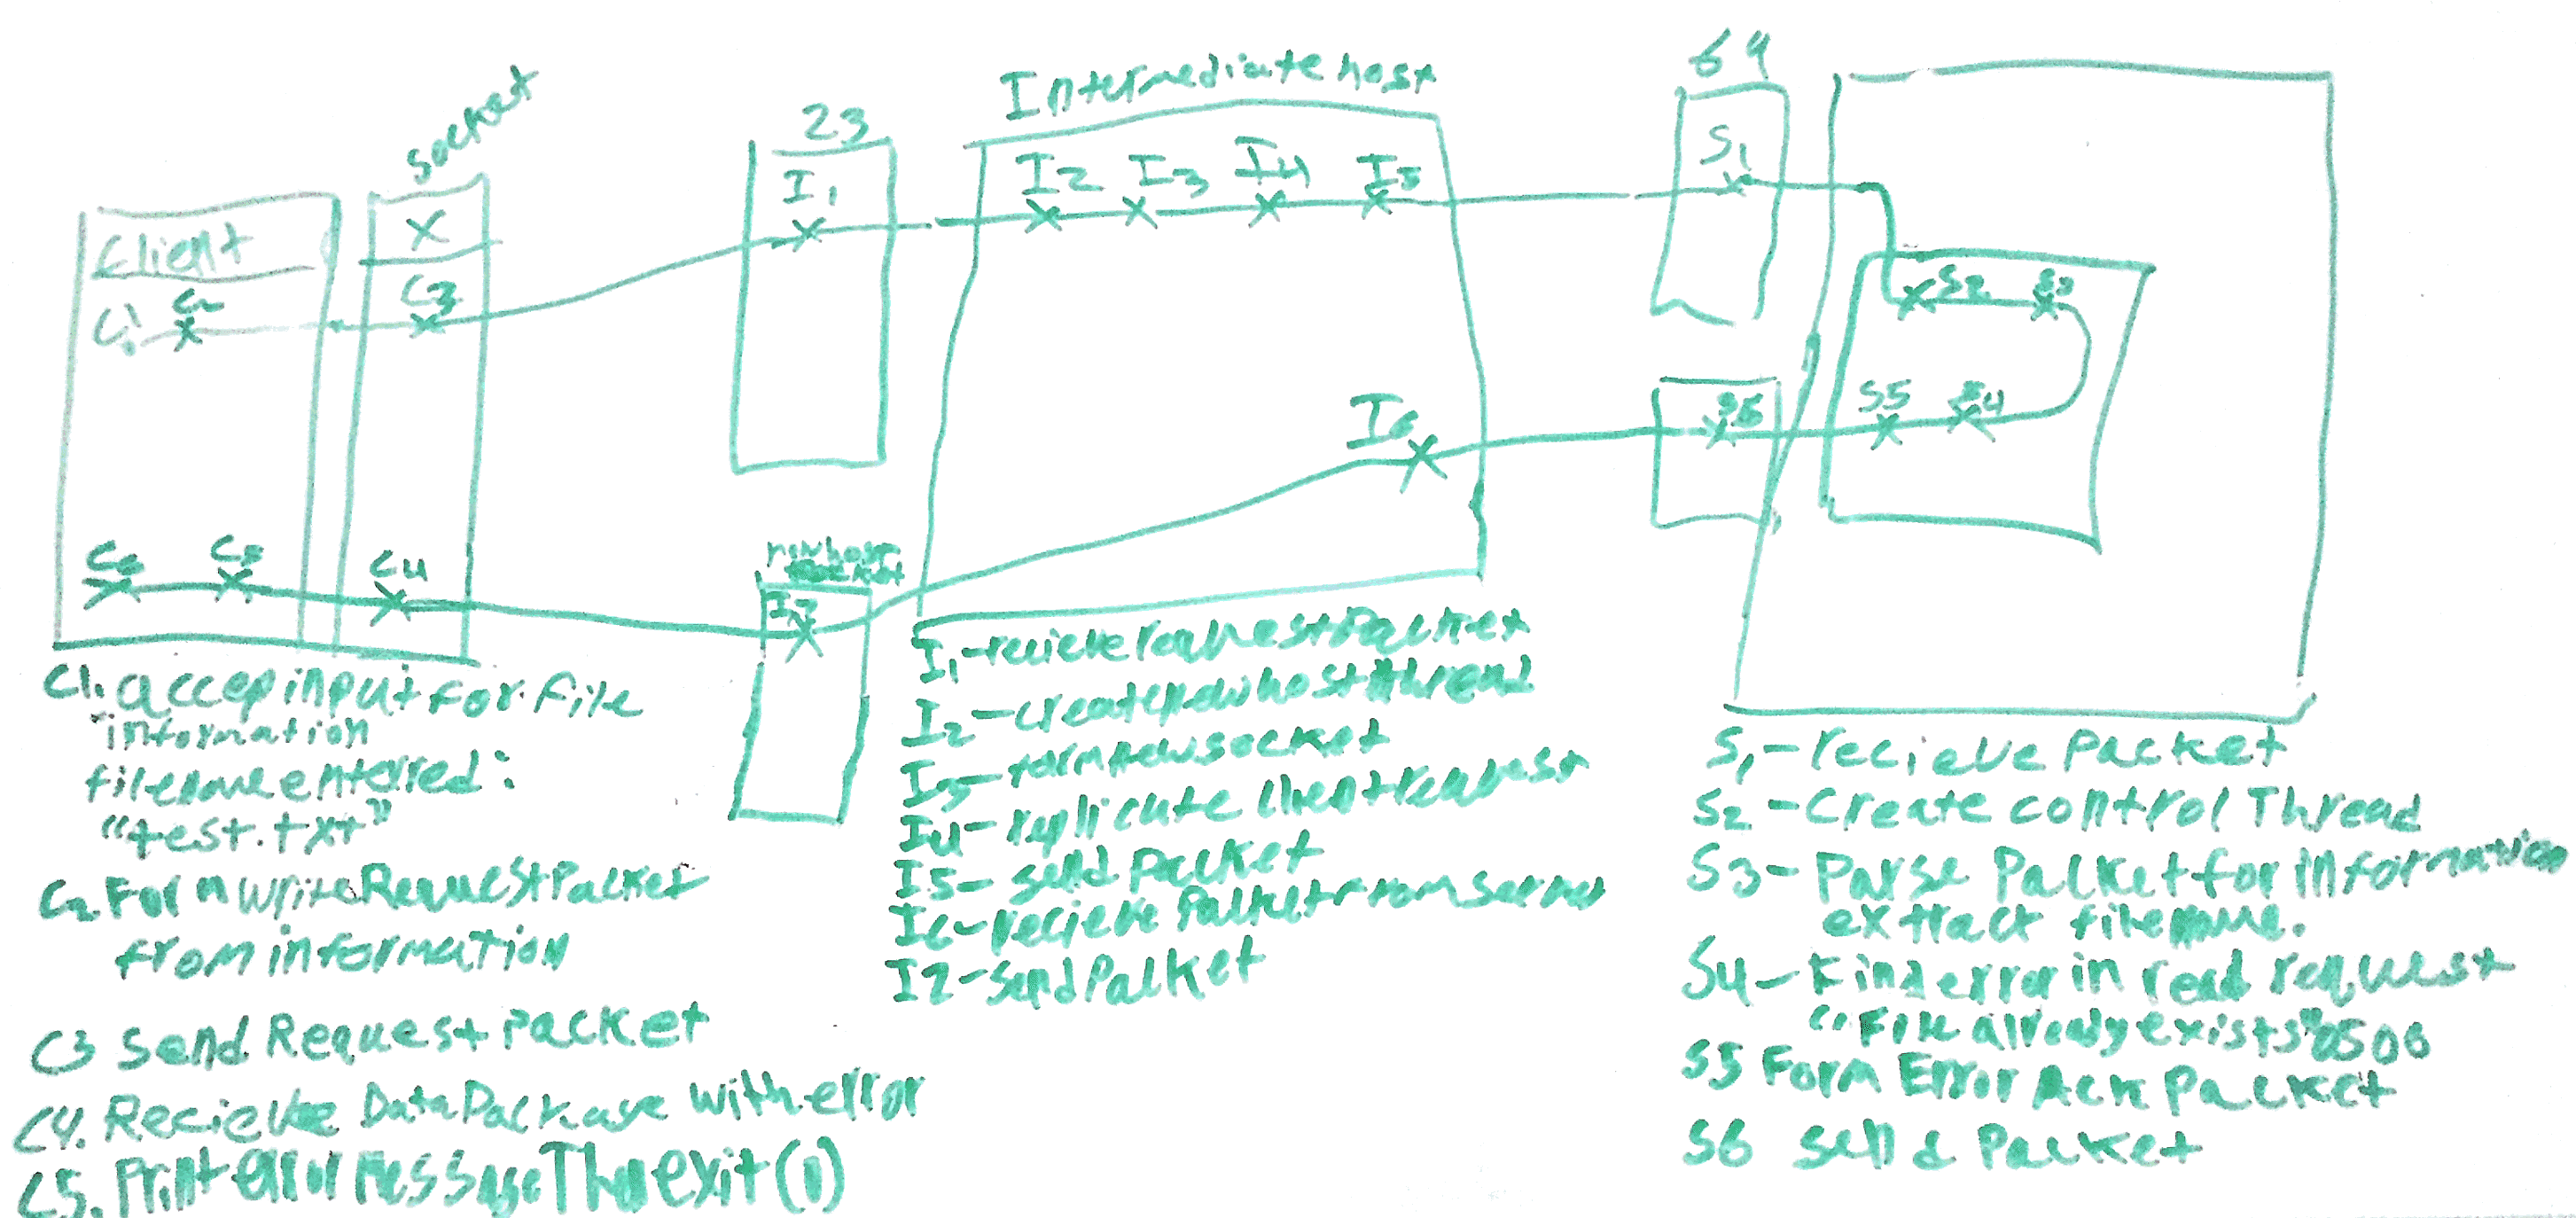 socket
Client
X
C1
C2
C3
C6
C5
C4
23
I1
new host
I7
Intermediate host
I2
I3
I4
I5
I6
64
S1
S2
S3
S5
S4
S6
C1. accep input for file
information
filename enterred:
"test.txt"
C2. Form Write Request Packet
from information
C3 Send Request Packet
C4. Recieve Data Package with error
C5. Print error message Then exit(1)
I1-recieve request Packet
I2-create new host thread
I3-form new socket
I4-replicate client request
I5-send packet
I6-recieve Packet from server
I7-Send Packet
S1-recieve Packet
S2-Create control Thread
S3-Parse Packet for information
extract filename.
S4-Find error in read request
"File already exists" 0506
S5 Form Error Ack Packet
S6 Send Packet